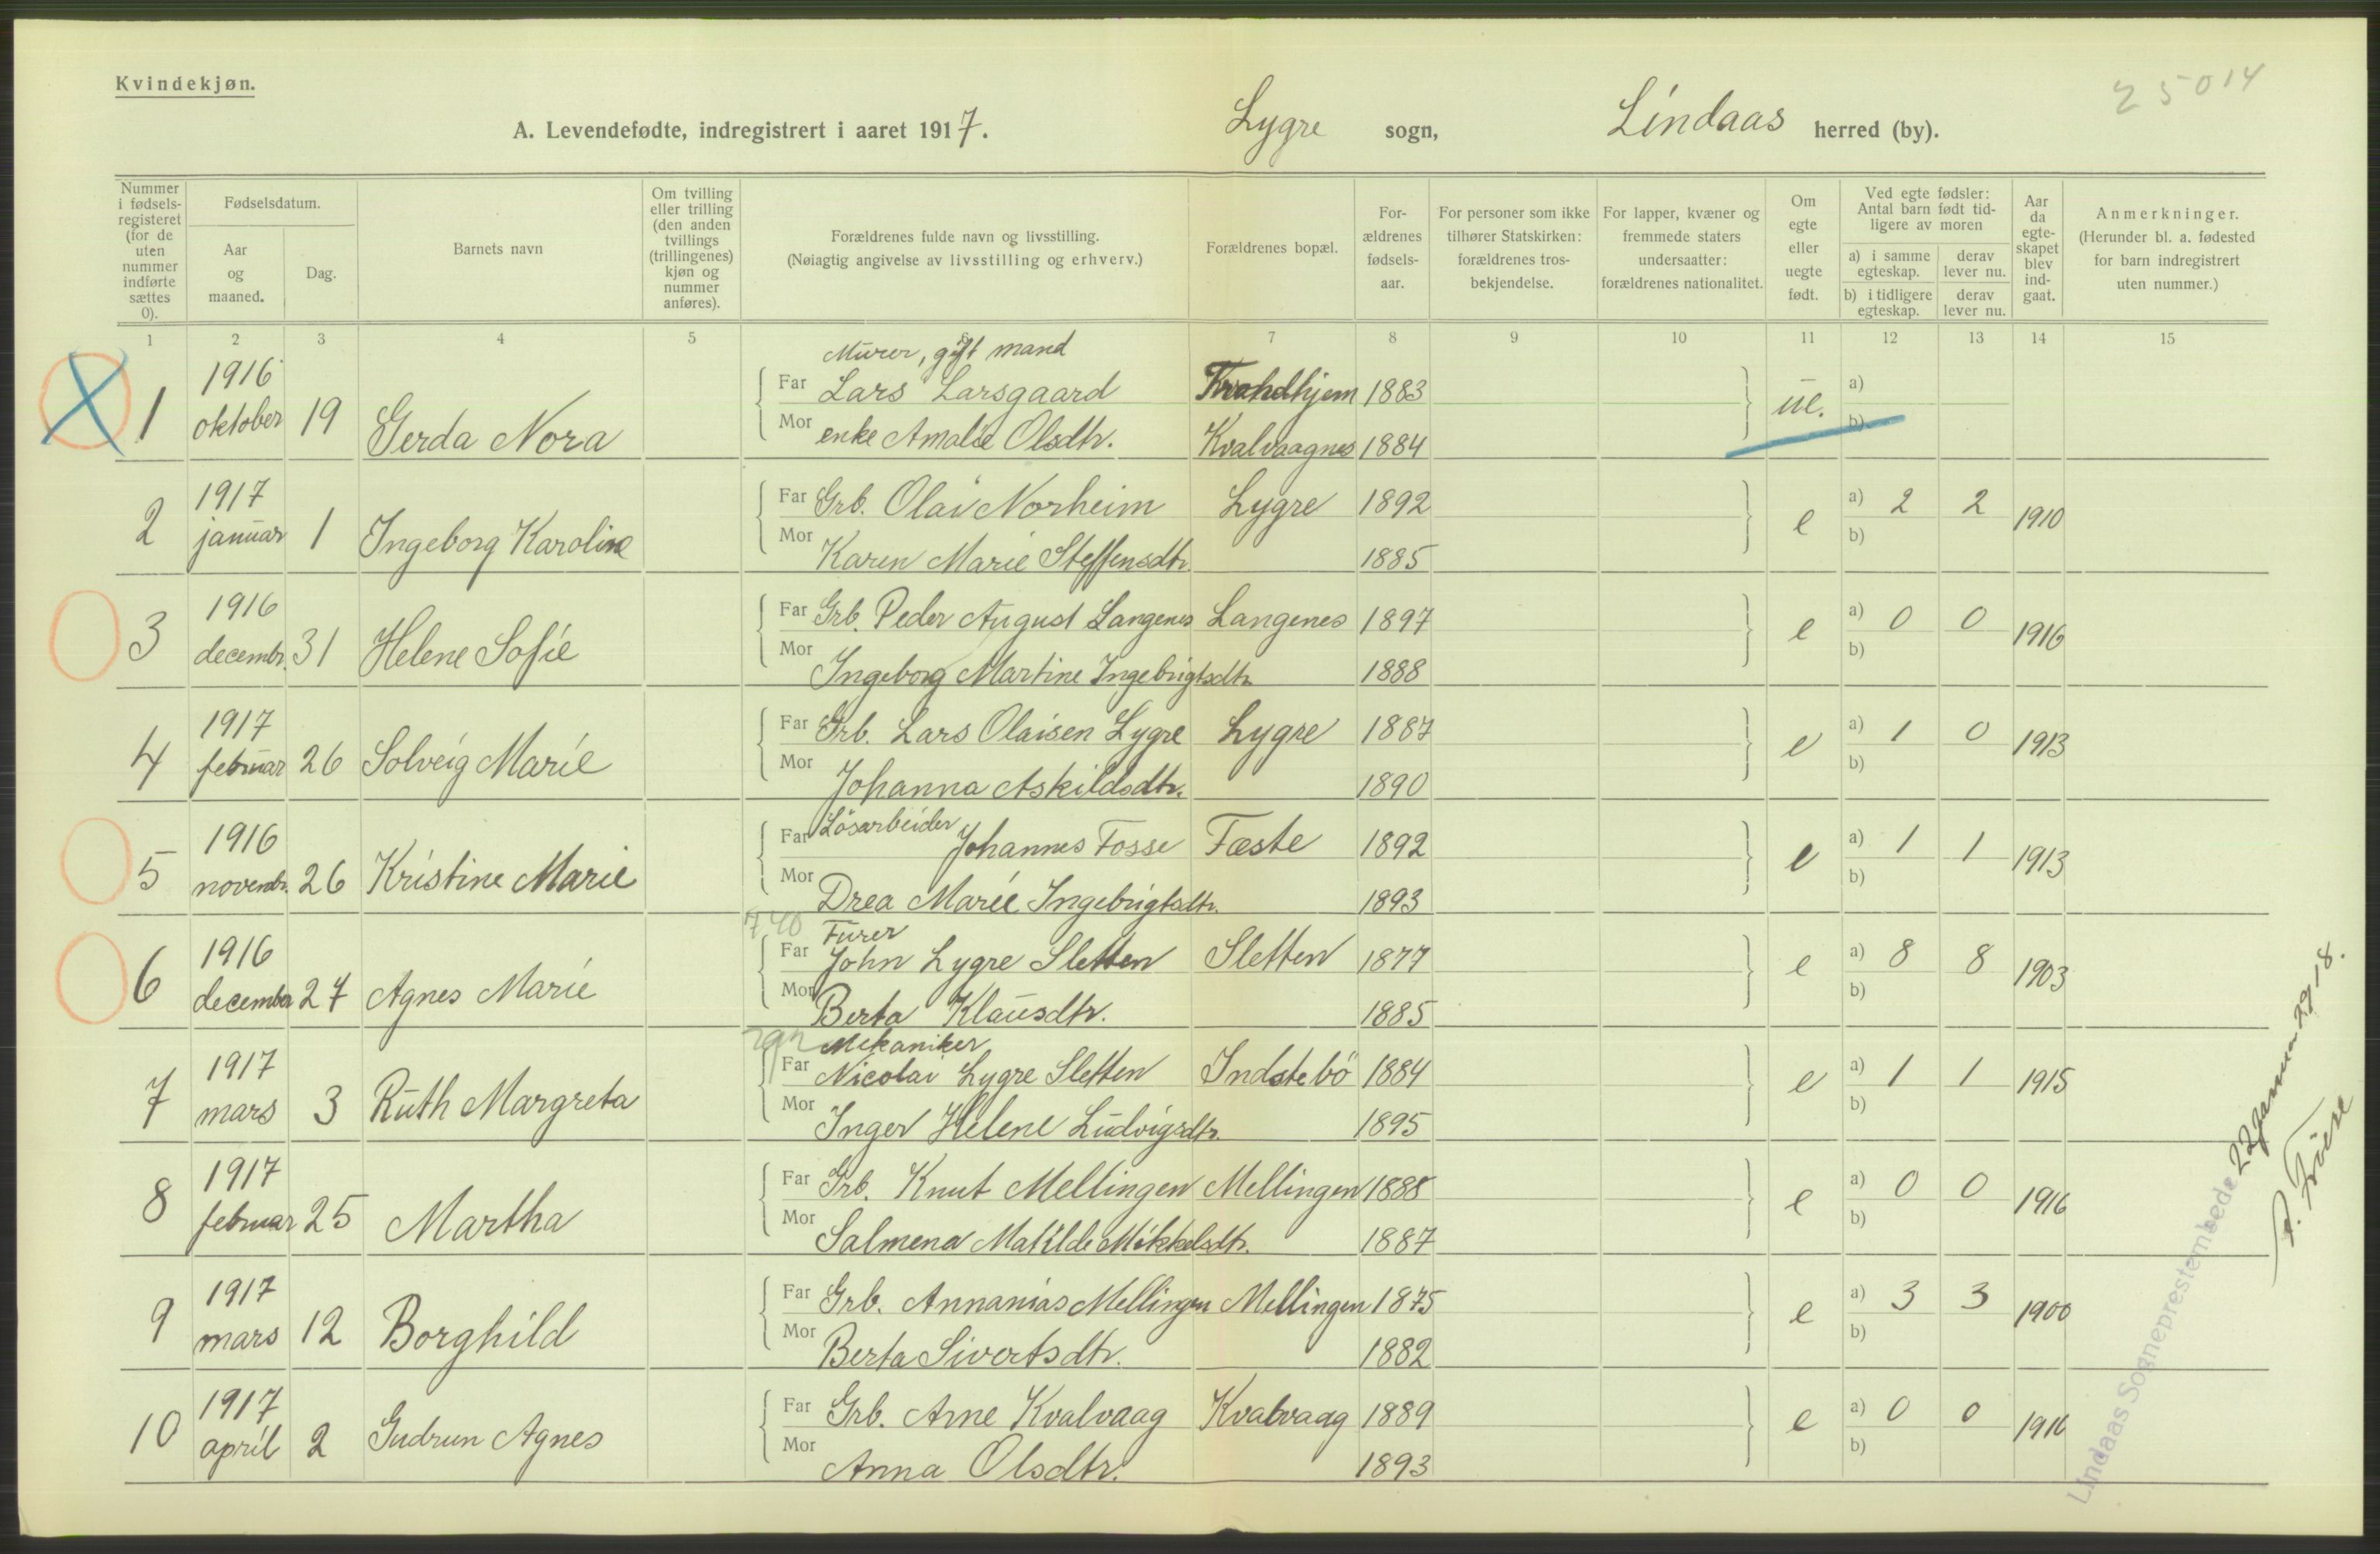 Kvindekjøn.
25014
A. Levendefødte, indregistrert i aaret 1917. Lygre sogn, Lindaas herred (by).
Nummer i fødselsregisteret (for de uten nummer indførte sættes 0).
Fødselsdatum.
Aar og maaned.
Dag.
Barnets navn
Om tvilling eller trilling (den anden tvillings (trillingenes) kjøn og nummer anføres).
Forældrenes fulde navn og livsstilling.
(Nøiagtig angivelse av livsstilling og erhverv.)
Forældrenes bopæl.
Forældrenes fødselsaar.
For personer som ikke tilhører Statskirken: forældrenes trosbekjendelse.
For lapper, kvæner og fremmede staters undersaatter: forældrenes nationalitet.
Om egte eller uegte født.
Ved egte fødsler: Antal barn født tidligere av moren
a) i samme egteskap. derav lever nu.
b) i tidligere egteskap. derav lever nu.
Aar da egteskapet blev indgaat.
Anmerkninger.
(Herunder bl. a. fødested for barn indregistrert uten nummer.)
1 2 3 4 5 6 7 8 9 10 11 12 13 14 15
Murer, gift mand
1 1916 oktober 19 Gerda Nora Far Lars Larsgaard 1883 ue. a)
Mor enke Amalie Olsdtr. Kvalvaagnes 1884 b)
2 1917 januar 1 Ingeborg Karoline Far Grb. Olai Norheim Lygre 1892 e a) 2 2 1910
Mor Karen Marie Steffensdtr. 1885 b)
3 1916 decembr. 31 Helene Sofie Far Grb. Peder August Langenes Langenes 1897 e a) 0 0 1916
Mor Ingeborg Martine Ingebrigtsdtr 1888 b)
4 1917 februar 26 Solveig Marie Far Grb. Lars Olaisen Lygre Lygre 1887 e a) 1 0 1913
Mor Johanna Askildsdtr. 1890 b)
5 1916 novembr. 26 Kristine Marie Far Lösarbeider Johannes Fosse Fæste 1892 e a) 1 1 1913
Mor Drea Marie Ingebrigtsdtr. 1893 b)
Furer
6 1916 december 27 Agnes Marie Far John Lygre Sletten Sletten 1877 e a) 8 8 1903
Mor Berta Klausdtr. 1885 b)
Mekaniker
7 1917 mars 3 Ruth Margreta Far Nicolai Lygre Sletten Indstebö 1884 e a) 1 1 1915
Mor Inger Helene Ludvigsdtr. 1895 b)
8 1917 februar 25 Martha Far Grb. Knut Mellingen Mellingen 1888 e a) 0 0 1916
Mor Salmena Matilde Mikkelsdtr. 1887 b)
9 1917 mars 12 Borghild Far Grb. Annanias Mellingen Mellingen 1875 e a) 3 3 1900
Mor Berta Sivertsdtr. 1882 b)
10 1917 april 2 Gudrun Agnes Far Grb. Arne Kvalvaag Kvalvaag 1889 e a) 0 0 1916
Mor Anna Olsdtr. 1893 b)
Lindaas Sogneprestembede 22 januar 1918.